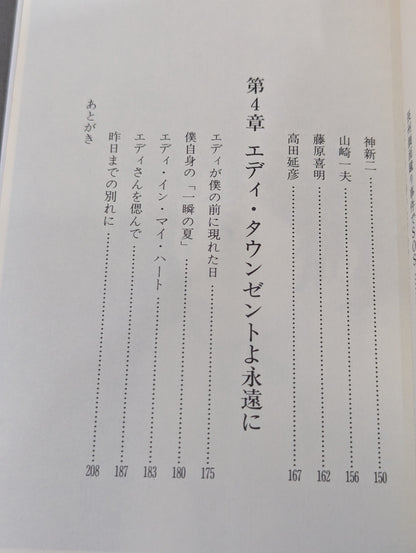 神新二……150
山崎一夫……156
藤原喜明……162
高田延彦……167
第4章 エディ・タウンゼントよ永遠に
エディが僕の前に現れた日……175
僕自身の「一瞬の夏」……180
エディ・イン・マイ・ハート……183
エディさんを偲んで……187
昨日までの別れに……
あとがき……208